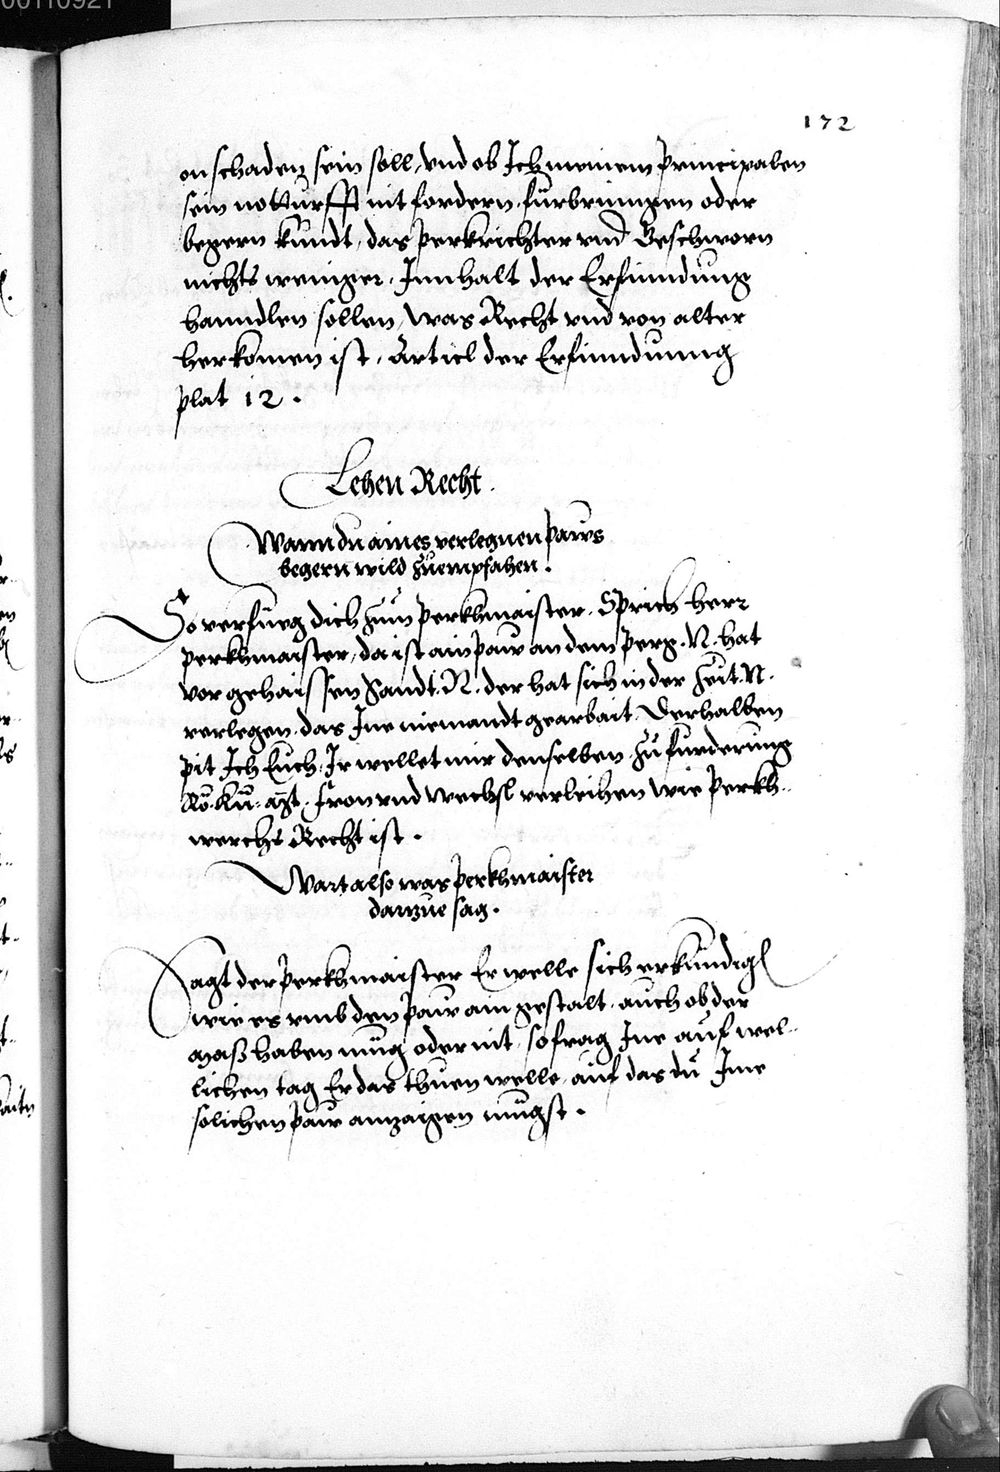 172
on schaden sein soll, vnd ob Ich meinem Principalen
sein notturfft nit fordern, furbringen oder
begern kundt, das Perkrichter vnd Geschworn
nichts weniger, Innhalt der Erfinndung
hanndlen sollen, was Recht vnd von alter
herkomen ist, Articl der Erfinndunng
plat 12.
Lehen Recht.
Wann du aines verlegnen Paws
begern wild zuempfahen.
So verfueg dich zum Perkhmaister. Sprich herr
Perkhmaister, da ist ain paw an dem perg. N. hat
vor gehaissen Sandt. N. der hat sich in der Zeit. N.
verlegen, das Ine niemandt gearbait. Derhalben
pit Ich Euch, Ir wellet mir denselben, zu furderung
Rö. Kü. Fron vnd Wechsl verleihen wie Perkh-
werchs Recht ist.
Wart also was Perkhmaister
darzue sag.
Sagt der Perkhmaister Er welle sich erkundign
wie es vmb den Paw ain gestalt, auch ob der
maß haben mug oder nit, so frag Ine auf wel-
lichen tag Er das thuen welle, auf das du Ime
solichen paw anzaigen mugst.